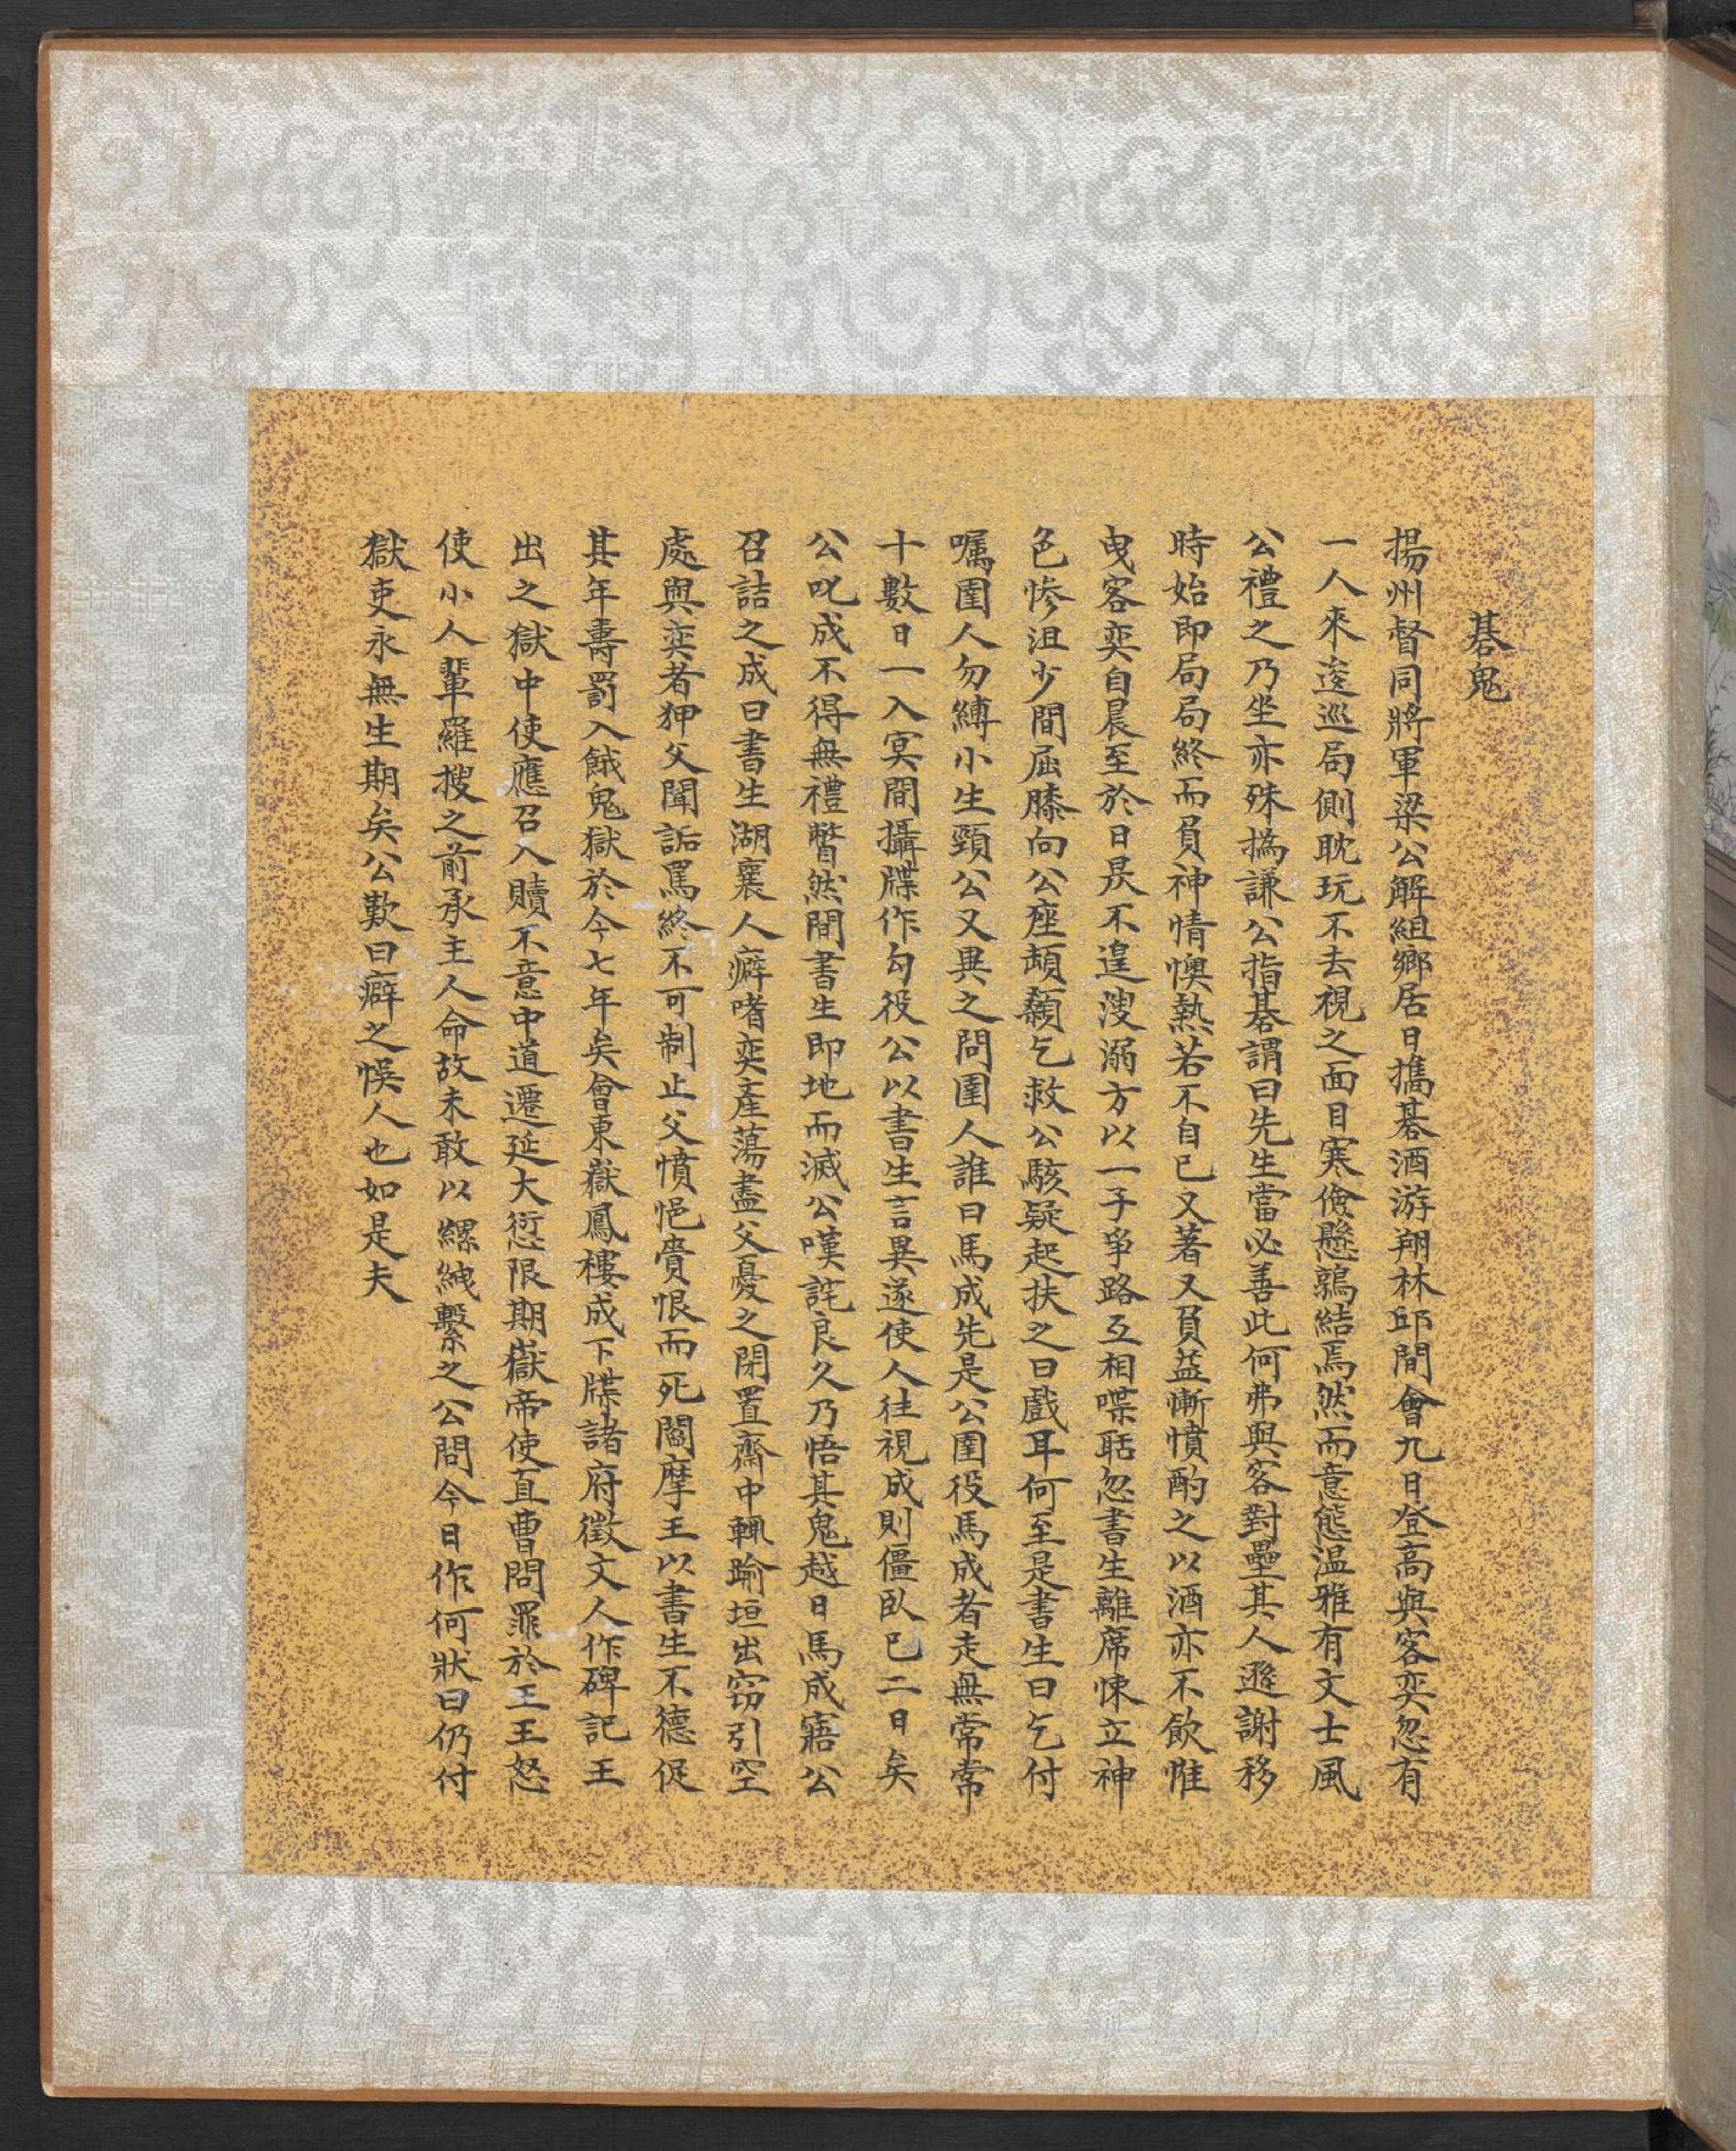 碁鬼
揚州督同將軍梁公解組鄉居日攜碁酒游翔林邱間會九日登高與客奕忽有
一人來逡巡局側耽玩不去視之面目寒儉懸鶉結焉然而意態温雅有文士風
公禮之乃坐亦殊撝謙公指碁謂曰先生當必善此何弗與客對壘其人遜謝移
時始即局局終而負神情懊熱若不自已又著又負益慚憤酌之以酒亦不飲惟
曳客奕自晨至於日昃不遑溲溺方以一子爭路互相喋聒忽書生離席悚立神
色慘沮少間屈膝向公座頓顙乞救公駭疑起扶之曰戲耳何至是書生曰乞付
嘱圉人勿縛小生頸公又異之問圉人誰曰馬成先是公圉役馬成者走無常常
十數日一入冥間攝牒作勾役公以書生言異遂使人往視成則僵臥已二日矣
公叱成不得無禮瞥然間書生即地而滅公嘆詫良久乃悟其鬼越日馬成寤公
召詰之成曰書生湖襄人癖嗜奕產蕩盡父憂之閉置齋中輒踰垣出窃引空
處與奕者狎父聞詬罵終不可制止父憤悒賫恨而死閻摩王以書生不德促
其年壽罰入餓鬼獄於今七年矣會東嶽鳳樓成下牒諸府徵文人作碑記王
出之獄中使應召入贖不意中道遷延大愆限期嶽帝使直曹問罪於王王怒
使小人輩羅搜之前承主人命故未敢以縲絏繫之公問今日作何狀曰仍付
獄吏永無生期矣公歎曰癖之悞人也如是夫